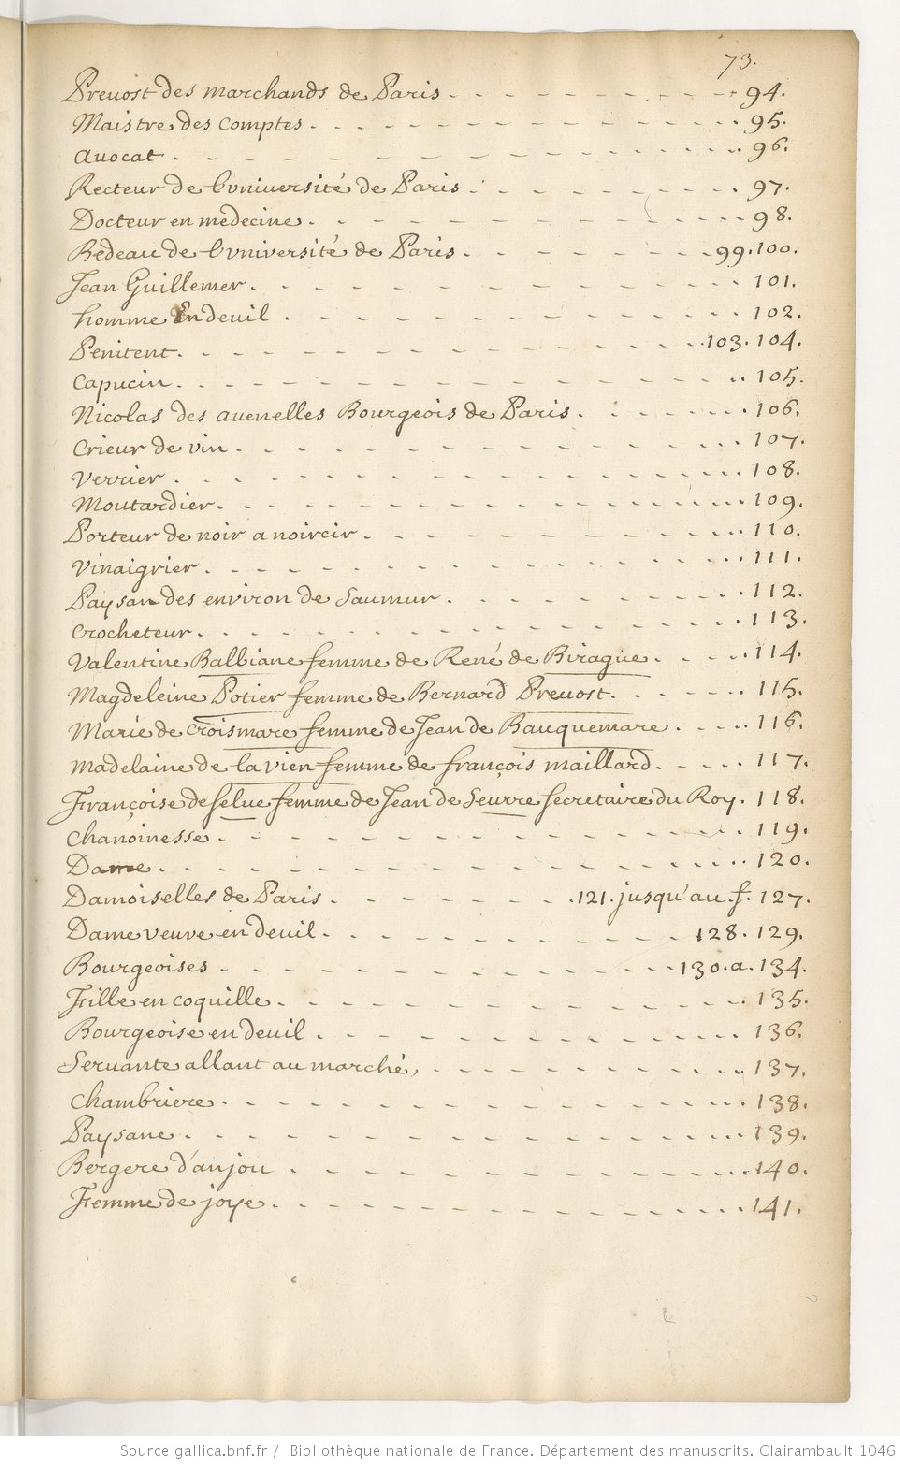 73.
Prevost des marchands de Paris. 94.
Maistre des Comptes. 95.
Avocat. 96.
Recteur de l'université de Paris. 97.
Docteur en medecine. 98.
Bedeau de l'université de Paris. 99.100.
Jean Guillemer. 101.
homme En deuil. 102.
Penitent. 103.104.
Capucin. 105.
Nicolas des avenelles Bourgeois de Paris. 106.
Crieur de vin. 107.
Verrier. 108.
Moutardier. 109.
Porteur de noir a noircir. 110.
Vinaigrier. 111.
Paysan des environ de Saumur. 112.
Crocheteur. 113.
Valentine Balbiane femme de René de Birague. 114.
Magdeleine Potier femme de Bernard Prevost. 115.
Marie de Croismare femme de Jean de Bauquemare. 116.
Madelaine de la vien femme de françois maillard. 117.
Françoise de selve femme de Jean de Seurre secretaire du Roy. 118.
Chanoinesse. 119.
Dame. 120.
Damoiselles de Paris. 121. jusqu'au f. 127.
Dame veuve en deuil. 128. 129.
Bourgeoises. 130. a. 134.
Fille en coquille. 135.
Bourgeoise en deuil. 136.
Servante allant au marché. 137.
Chambriere. 138.
Paysane. 139.
Bergere d'anjou. 140.
Femme de joye. 141.
Source gallica.bnf.fr / Bibliothèque nationale de France. Département des manuscrits. Clairambault 1046